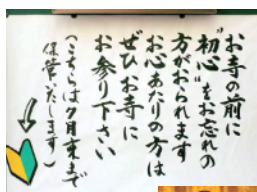 お寺の前に
"初心"をお忘れの
方がおられます
お心あたりの方は
ぜひお寺に
お参り下さい
(こちらは7月末まで
保管いたします)